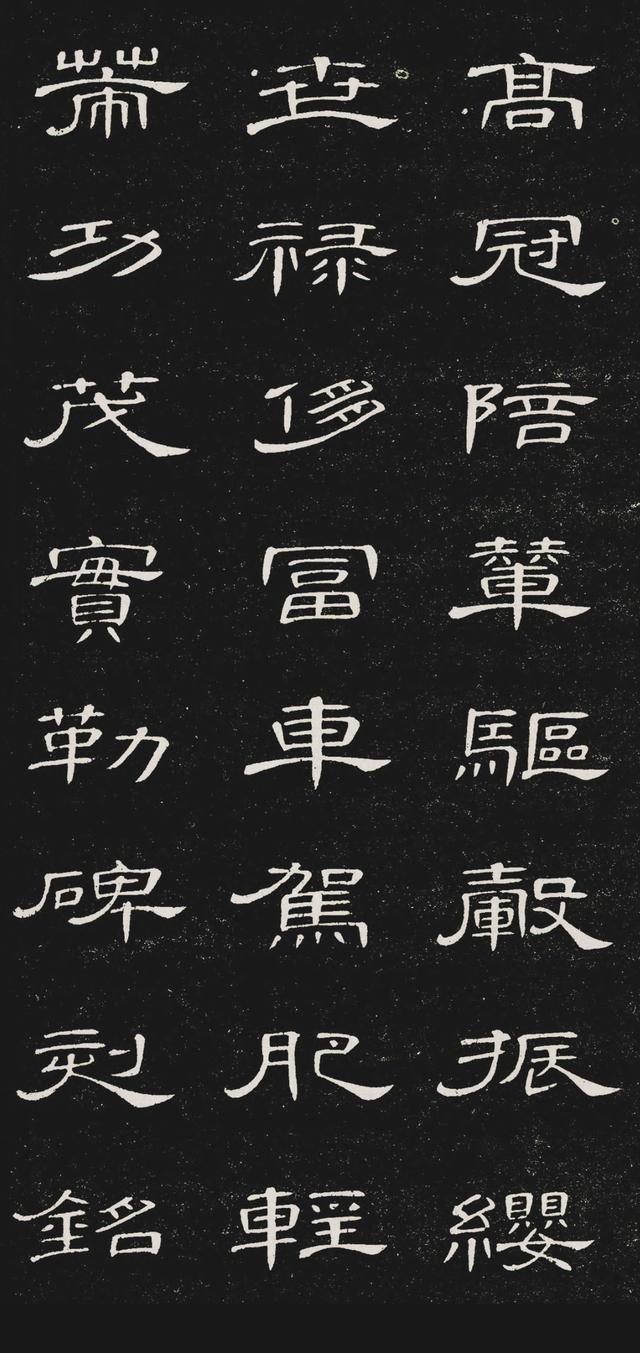 髙冠陪輦驅轂振纓
世禄侈冨車駕肥輕
策功茂實勒碑刻銘